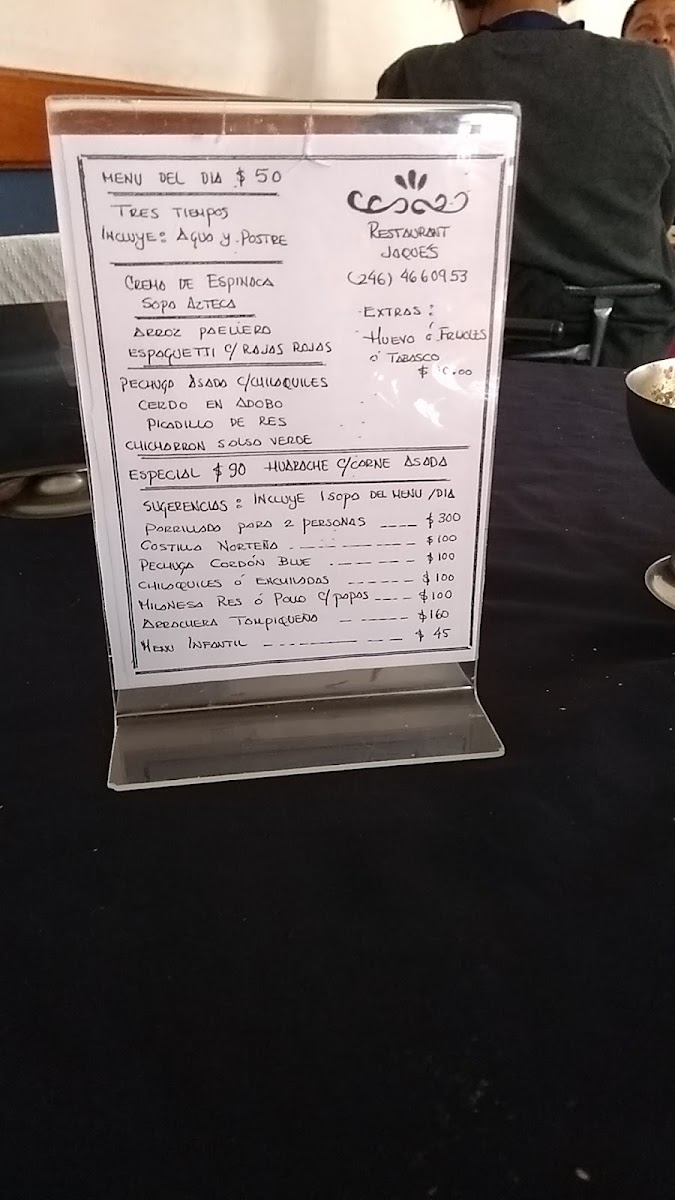 MENU DEL DIA $50
TRES TIEMPOS
INCLUYE: AGUA Y POSTRE
RESTAURANT
JAQUE'S
(246) 4660953
CREMA DE ESPINACA
SOPA AZTECA
ARROZ PAELLERO
ESPAGUETTI C/ RAJAS ROJAS
EXTRAS:
HUEVO ó FRIJOLES
ó TABASCO
PECHUGA ASADA C/CHILAQUILES
CERDO EN ADOBO
PICADILLO DE RES
CHICHARRON SALSA VERDE
ESPECIAL $90 HUARACHE C/CARNE ASADA
SUGERENCIAS: INCLUYE 1 SOPA DEL MENU/DIA
PARRILLADA PARA 2 PERSONAS ---- $300
COSTILLA NORTEÑA ---------- $100
PECHUGA CORDÓN BLUE ------- $100
CHILAQUILES ó ENCHILADAS ------ $100
MILANESA RES ó POLLO C/PAPAS ---- $100
ARRACHERA TAMPIQUEÑA ------ $160
MENU INFANTIL ----------- $ 45